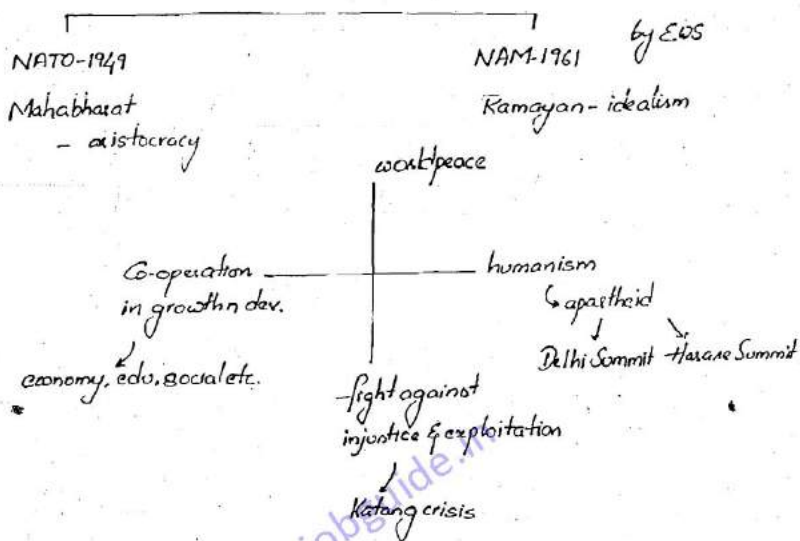 by EWS
NATO-1949
NAM-1961
Mahabharat
- aristocracy
Ramayan - idealism
world peace
Co-operation
in growth n dev.
economy, edu, social etc.
humanism
↳ apartheid
Delhi Summit
Harare Summit
fight against
injustice & exploitation
Katang crisis
jobguide.in